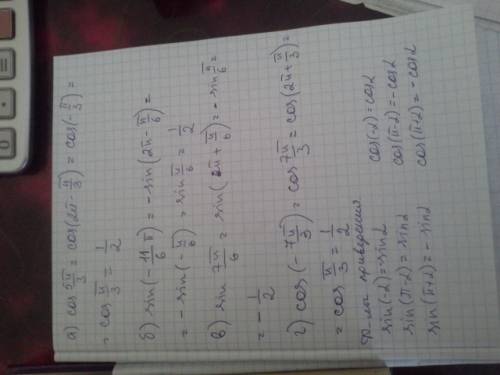 а) cos 5π/3 = cos(2π - π/3) = cos(-π/3) =
= cos π/3 = 1/2
б) sin(-11π/6) = -sin(2π - π/6) =
= -sin(-π/6) = sin π/6 = 1/2
в) sin 7π/6 = sin(π + π/6) = -sin π/6 =
= -1/2
г) cos(-7π/3) = cos 7π/3 = cos(2π + π/3) =
= cos π/3 = 1/2
приведения
sin(-α) = -sinα cos(-α) = cosα
sin(π-α) = sinα cos(π-α) = -cosα
sin(π+α) = -sinα cos(π+α) = -cosα